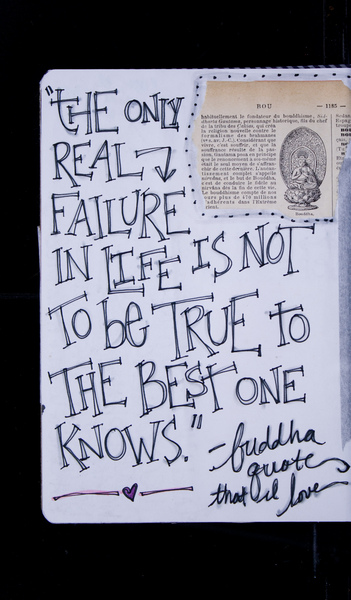 "THE ONLY
REAL
FAILURE
IN LIFE IS NOT
TO be TRUE to
THE BEST ONE
KNOWS."
-buddha
quote
that I love
BOU — 1185 —
habituellement le fondateur du bouddhisme,
Gautama, personnage historique, fils du chef
de la tribu des Çakyas, qui créa
la religion nouvelle contre le
formalisme des brahmanes
av. J.-C.). Considérant que
vivre, c'est souffrir, et que la
souffrance résulte de la pas-
sion, Gautama posa en principe
que le renoncement à soi-même
était le seul moyen de s'affran-
chir de cette dernière. L'anéan-
tissement complet s'appelle
et le but
est de conduire le fidèle au
dès la fin de cette vie.
Le Bouddhisme compte de nos
jours plus de 470 millions
d'adhérents dans l'Extrême-
Orient.
Bouddha.